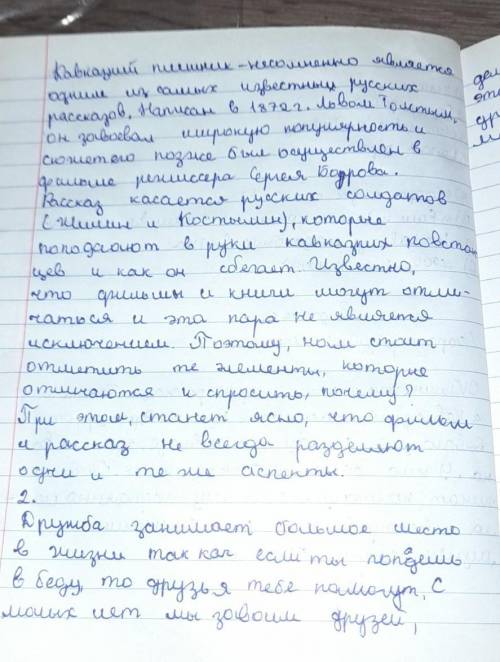 Кавказкий пленник - несомненно является
одним из самых известных русских
рассказов. Написан в 1872 г. Львом Толстым,
он завоевал широкую популярность и
сюжет его позже был осуществлен в
фильме режиссера Сергея Бодрова.
Рассказ касается русских солдатов
(Жилин и Костылин), которые
попадают в руки кавказких повстан
цев и как он сбегает. Известно,
что фильмы и книги могут отли-
чаться и эта пара не является
исключением. Поэтому, нам стоит
отметить те элементы, которые
отличаются и спросить, почему?
При этом, станет ясно, что фильм
и рассказ не всегда разделяют
одни и те же аспекты.
2.
Дружба занимает большое место
в жизни так как если ты попадешь
в беду, то друзья тебе помогут. С
малых лет мы заводим друзей,